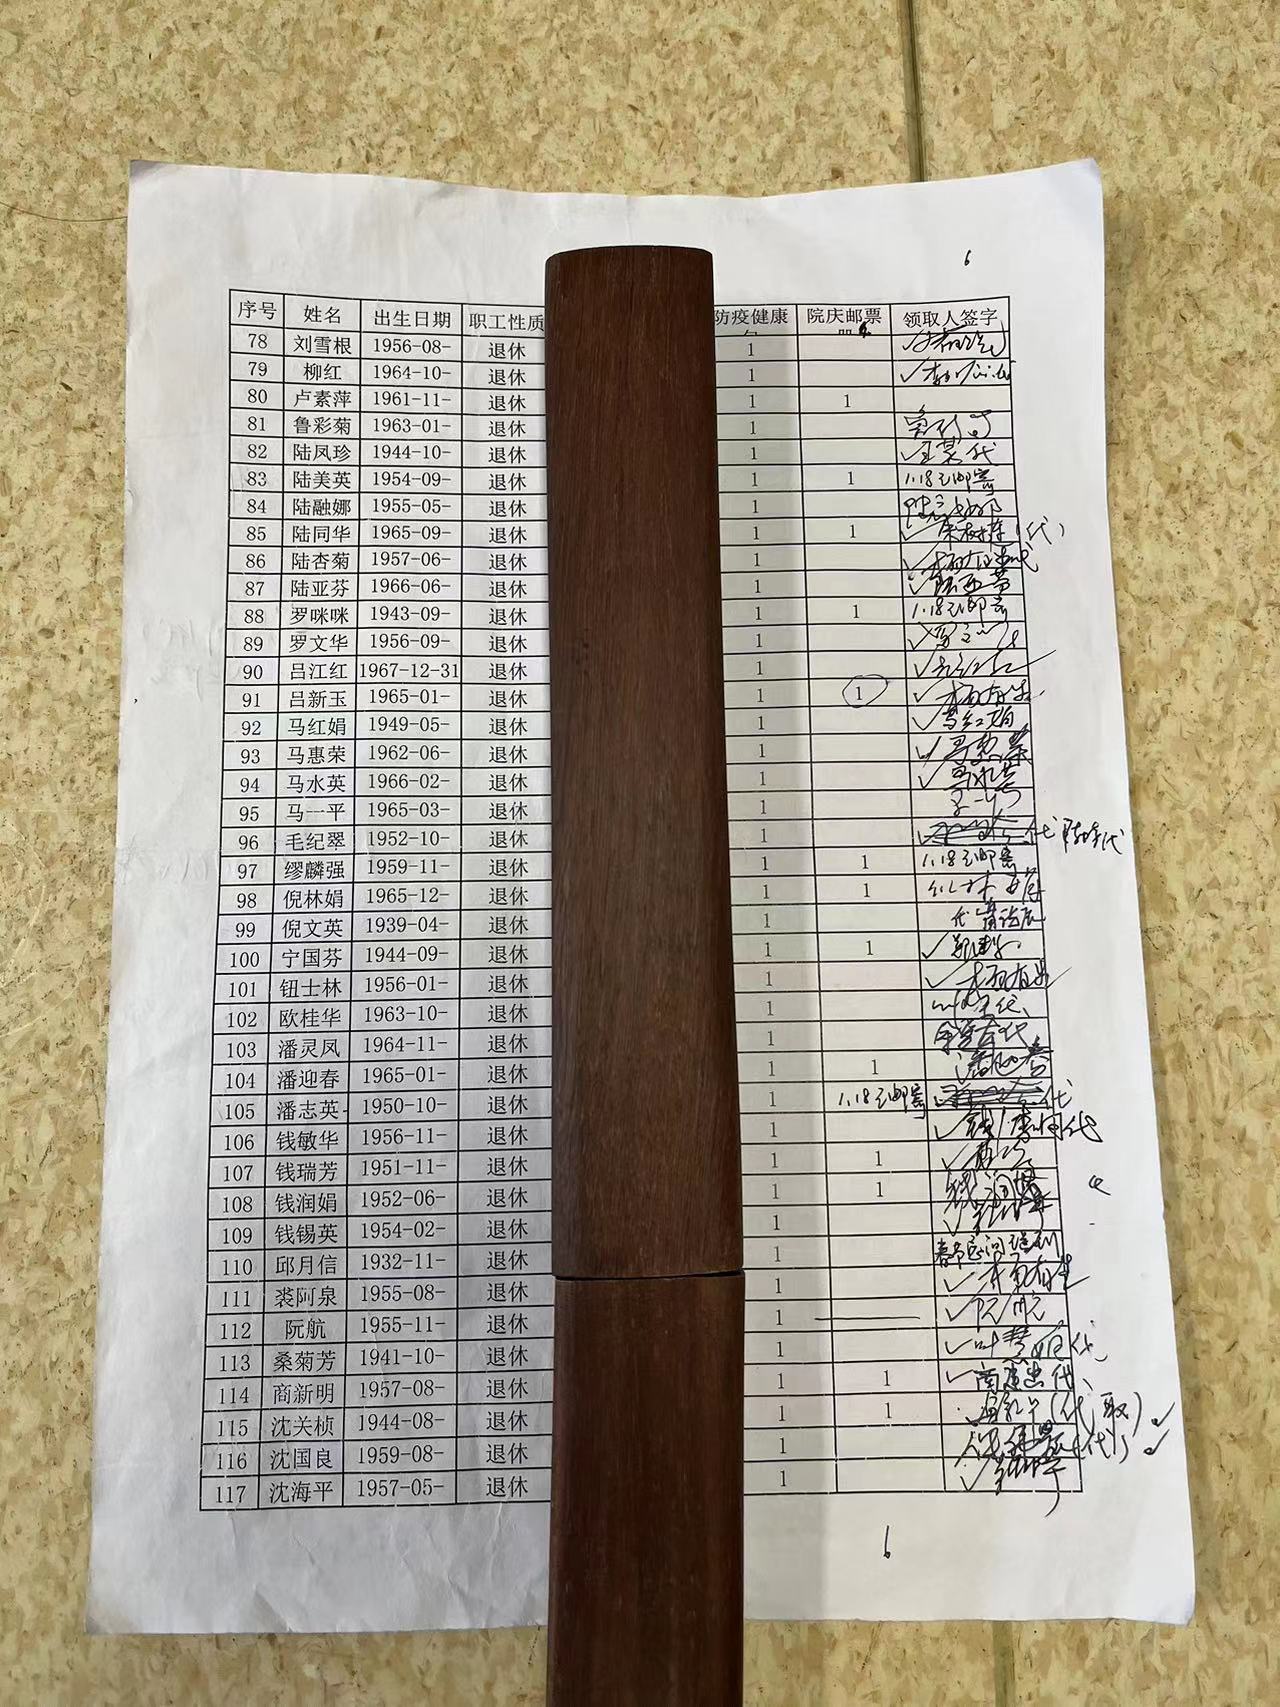 6
序号 姓名 出生日期 职工性质 防疫健康 院庆邮票 领取人签字
78 刘雪根 1956-08- 退休 1
79 柳红 1964-10- 退休 1
80 卢素萍 1961-11- 退休 1 1
81 鲁彩菊 1963-01- 退休 1
82 陆凤珍 1944-10- 退休 1
83 陆美英 1954-09- 退休 1 1 1.18已邮寄
84 陆融娜 1955-05- 退休 1
85 陆同华 1965-09- 退休 1 1 (代)
86 陆杏菊 1957-06- 退休 1
87 陆亚芬 1966-06- 退休 1 陆亚芬
88 罗咪咪 1943-09- 退休 1 1 1.18已邮寄
89 罗文华 1956-09- 退休 1
90 吕江红 1967-12-31 退休 1
91 吕新玉 1965-01- 退休 1 1
92 马红娟 1949-05- 退休 1 马红娟
93 马惠荣 1962-06- 退休 1 马惠荣
94 马水英 1966-02- 退休 1 马水英
95 马一平 1965-03- 退休 1
96 毛纪翠 1952-10- 退休 1 代
97 缪麟强 1959-11- 退休 1 1 1.18已邮寄
98 倪林娟 1965-12- 退休 1 1
99 倪文英 1939-04- 退休 1 代
100 宁国芬 1944-09- 退休 1 1
101 钮士林 1956-01- 退休 1
102 欧桂华 1963-10- 退休 1 代
103 潘灵凤 1964-11- 退休 1 代
104 潘迎春 1965-01- 退休 1 1 潘迎春
105 潘志英 1950-10- 退休 1 1.18已邮寄 代
106 钱敏华 1956-11- 退休 1 代
107 钱瑞芳 1951-11- 退休 1 1
108 钱润娟 1952-06- 退休 1 1 钱润娟
109 钱锡英 1954-02- 退休 1
110 邱月信 1932-11- 退休 1 春节慰问送到
111 裘阿泉 1955-08- 退休 1
112 阮航 1955-11- 退休 1 阮航
113 桑菊芳 1941-10- 退休 1 代
114 商新明 1957-08- 退休 1 1 代
115 沈关桢 1944-08- 退休 1 1 (代取)
116 沈国良 1959-08- 退休 1 (代)
117 沈海平 1957-05- 退休 1
6